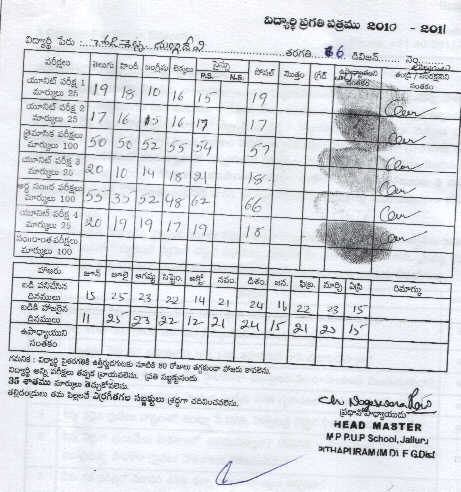 విద్యార్థి ప్రగతి పత్రము 2010 - 2011
విద్యార్థి పేరు : తరగతి 6 డివిజన్ నెం.
పరీక్షలు తెలుగు హిందీ ఇంగ్లీషు లెక్కలు సైన్సు P.S. N.S. సోషల్ మొత్తం గ్రేడ్ ఉపాధ్యాయుని సంతకం తండ్రి / సంరక్షకుని సంతకం
యూనిట్ పరీక్ష 1 మార్కులు 25 19 18 10 16 15 19
యూనిట్ పరీక్ష 2 మార్కులు 25 17 16 15 16 17 17
త్రైమాసిక పరీక్షలు మార్కులు 100 50 50 52 55 54 57
యూనిట్ పరీక్ష 3 మార్కులు 25 20 10 14 18 21 18
అర్ధ సంవ॥ర పరీక్షలు మార్కులు 100 55 35 52 48 62 66
యూనిట్ పరీక్ష 4 మార్కులు 25 20 19 19 17 19 18
సంవత్సరాంత పరీక్షలు మార్కులు 100
హాజరు జూన్ జూలై ఆగష్టు సెప్టెం. అక్టో నవం. డిశెం. జన. ఫిబ్ర. మార్చి ఏప్రి రిమార్కు
బడి పనిచేసిన దినములు 15 25 23 22 14 21 24 16 22 23 15
బడికి హాజరైన దినములు 11 25 23 22 12 21 24 15 21 23 15
ఉపాధ్యాయుని సంతకం
గమనిక : విద్యార్థి పైతరగతికి ఉత్తీర్ణుడగుటకు నూటికి 80 రోజులు తగ్గకుండా హాజరు కావలెను.
విద్యార్థి అన్ని పరీక్షలు తప్పక వ్రాయవలెను. ప్రతి సబ్జక్టునందు
35 శాతము మార్కులు తెచ్చుకోవలెను.
తల్లిదండ్రులు తమ పిల్లలచే ఎర్రగీతగల సబ్జక్టులు శ్రద్ధగా చదివించవలెను.
Ch. Nageswara Rao
ప్రధానోపాధ్యాయుడు
HEAD MASTER
M.P.P.U.P School, Jalluru
PITHAPURAM (M.D) E.G.Dist